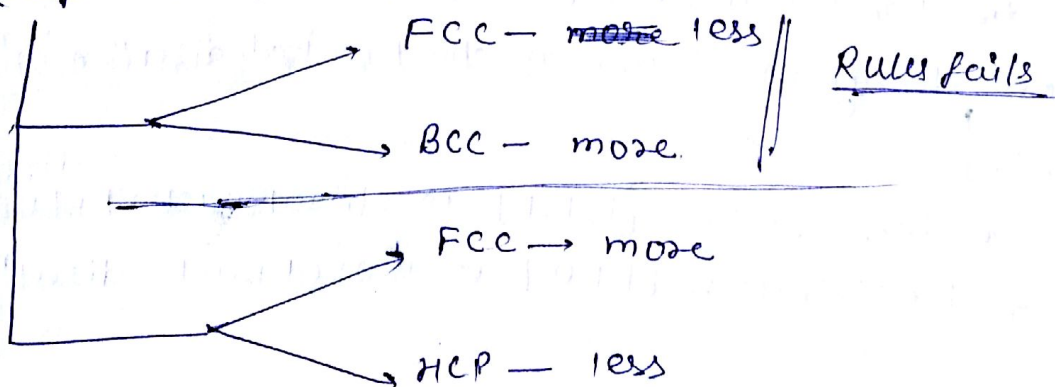 FCC — ~~more~~ less
Rules fails
BCC — more.
FCC → more
HCP — less